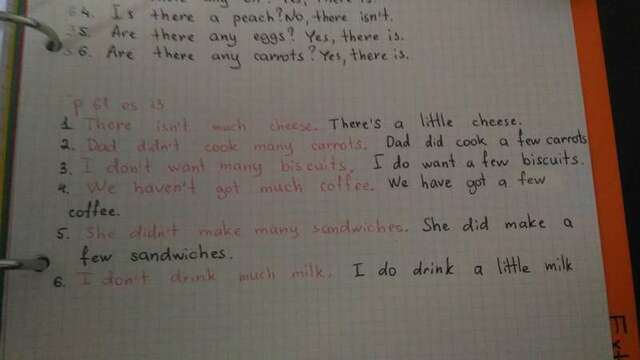 64. Is there a peach? No, there isn't.
35. Are there any eggs? Yes, there is.
36. Are there any carrots? Yes, there is.
p 61 es 13
1 There isn't much cheese. There's a little cheese.
2. Dad didn't cook many carrots. Dad did cook a few carrots
3. I don't want many biscuits. I do want a few biscuits.
4. We haven't got much coffee. We have got a few
coffee.
5. She didn't make many sandwiches. She did make a
few sandwiches.
6. I don't drink much milk. I do drink a little milk